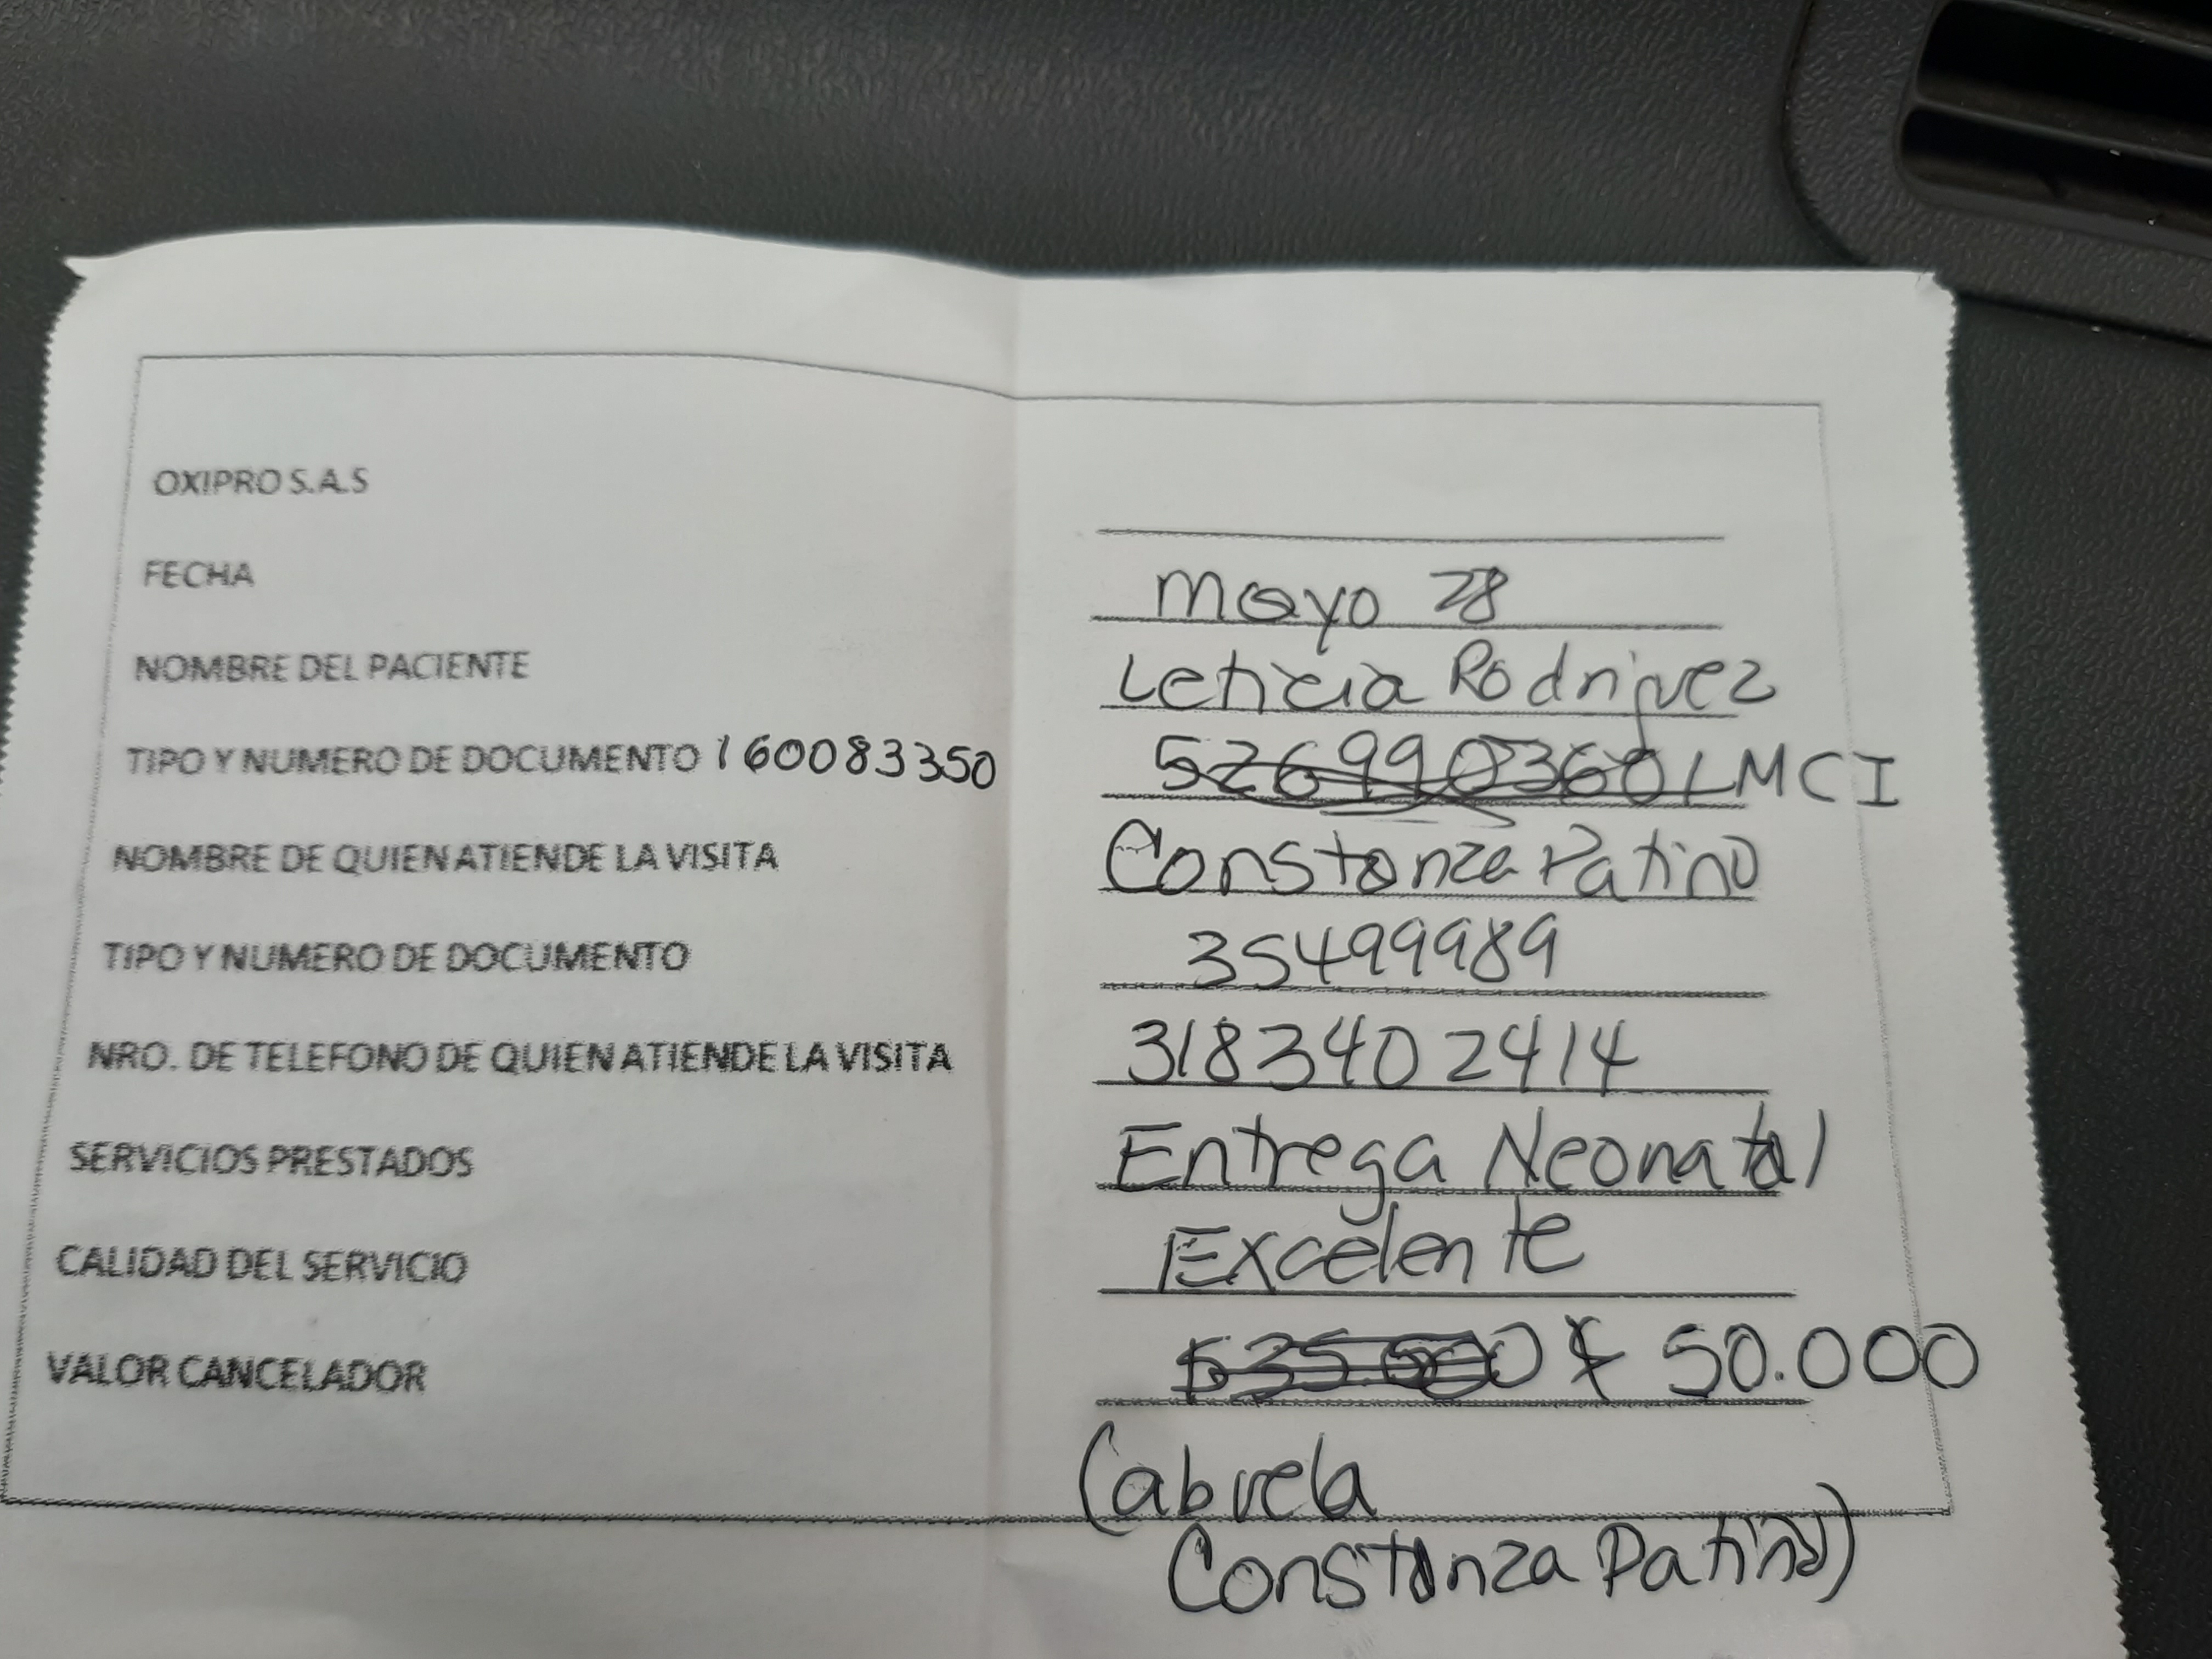 OXIPRO S.A.S
FECHA mayo 28
NOMBRE DEL PACIENTE Leticia Rodriguez
TIPO Y NUMERO DE DOCUMENTO 160083350 5269903601 MCI
NOMBRE DE QUIEN ATIENDE LA VISITA Constanza Patino
TIPO Y NUMERO DE DOCUMENTO 35499989
NRO. DE TELEFONO DE QUIEN ATIENDE LA VISITA 3183402414
SERVICIOS PRESTADOS Entrega Neonatal
CALIDAD DEL SERVICIO Excelente
VALOR CANCELADOR $ 50.000
(abuela
Constanza Patino)